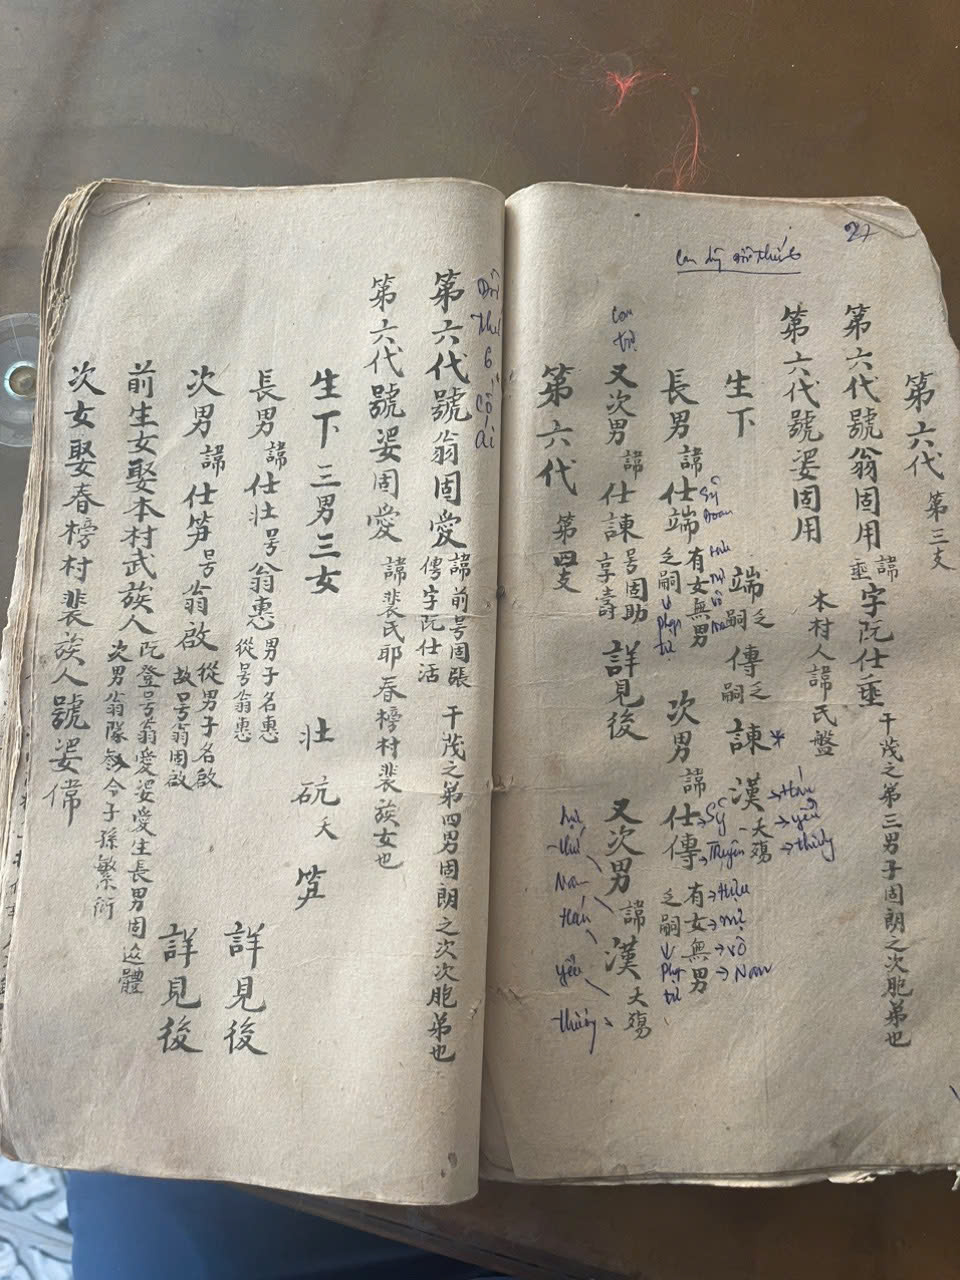 27
第六代 第三支
第六代號翁固用 諱垂 字阮仕垂 干茂之第三男子固朗之次胞弟也
第六代號婆固用 本村人諱氏盤
生下 端乏嗣 傳乏嗣 諫 漢夭殤
Hán
yểu
thương
長男諱仕端 有女無男乏嗣 次男諱仕傳 有女無男乏嗣
Sỹ
Đoan
Sỹ
Truyền
Hữu
nữ
vô
Nam
又次男諱仕諫 号固助享壽 詳見後 又次男諱漢 夭殤
thứ
Nam
Hán
yểu
第六代 第四支
Đời
thứ
6
cố
Ái
第六代號翁固愛 諱前号固張儚字阮仕活 干茂之第四男固朗之次次胞弟也
第六代號婆固愛 諱裴氏耶春榜村裴族女也
生下三男三女 壯 砊夭 笋
長男諱仕壯号翁惠 男子名惠從号翁惠 詳見後
次男諱仕笋号翁啟 從男子名啟故号翁固啟 詳見後
前生女娶本村武族人 阮登号翁愛婆愛生長男固 體次男翁隊 今子孫繁衍
次女娶春榜村裴族人號婆常